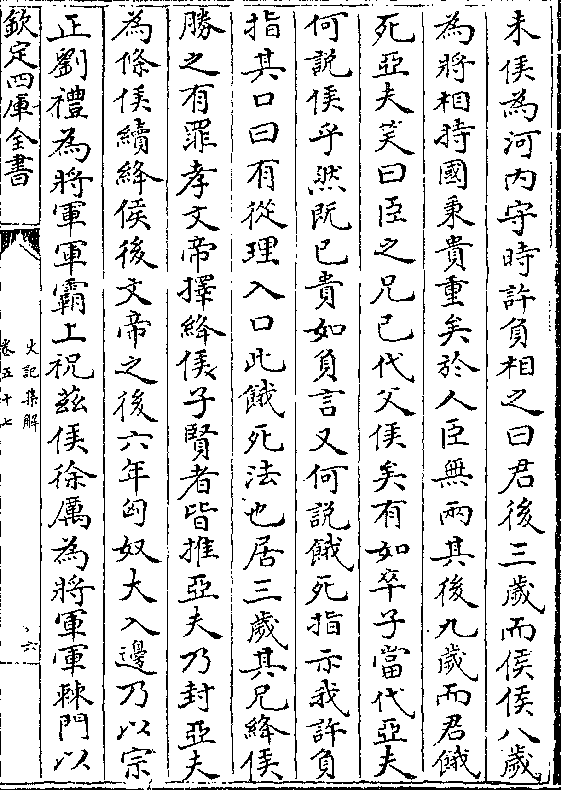 未侯為河内守時許負相之曰君後三歲而侯侯八歲
為將相持國秉貴重矣於人臣無兩其後九歲而君餓
死亞夫笑曰臣之兄已代父侯矣有如卒子當代亞夫
何説侯乎然既已貴如負言又何説餓死指示我許負
指其口曰有從理入口此餓死法也居三歲其兄絳侯
勝之有罪孝文帝擇絳侯子賢者皆推亞夫乃封亞夫
為條侯續絳侯後文帝之後六年匈奴大入邊乃以宗
正劉禮為將軍軍霸上祝兹侯徐厲為將軍軍棘門以
欽定四庫全書
史記集解
卷五十七
六